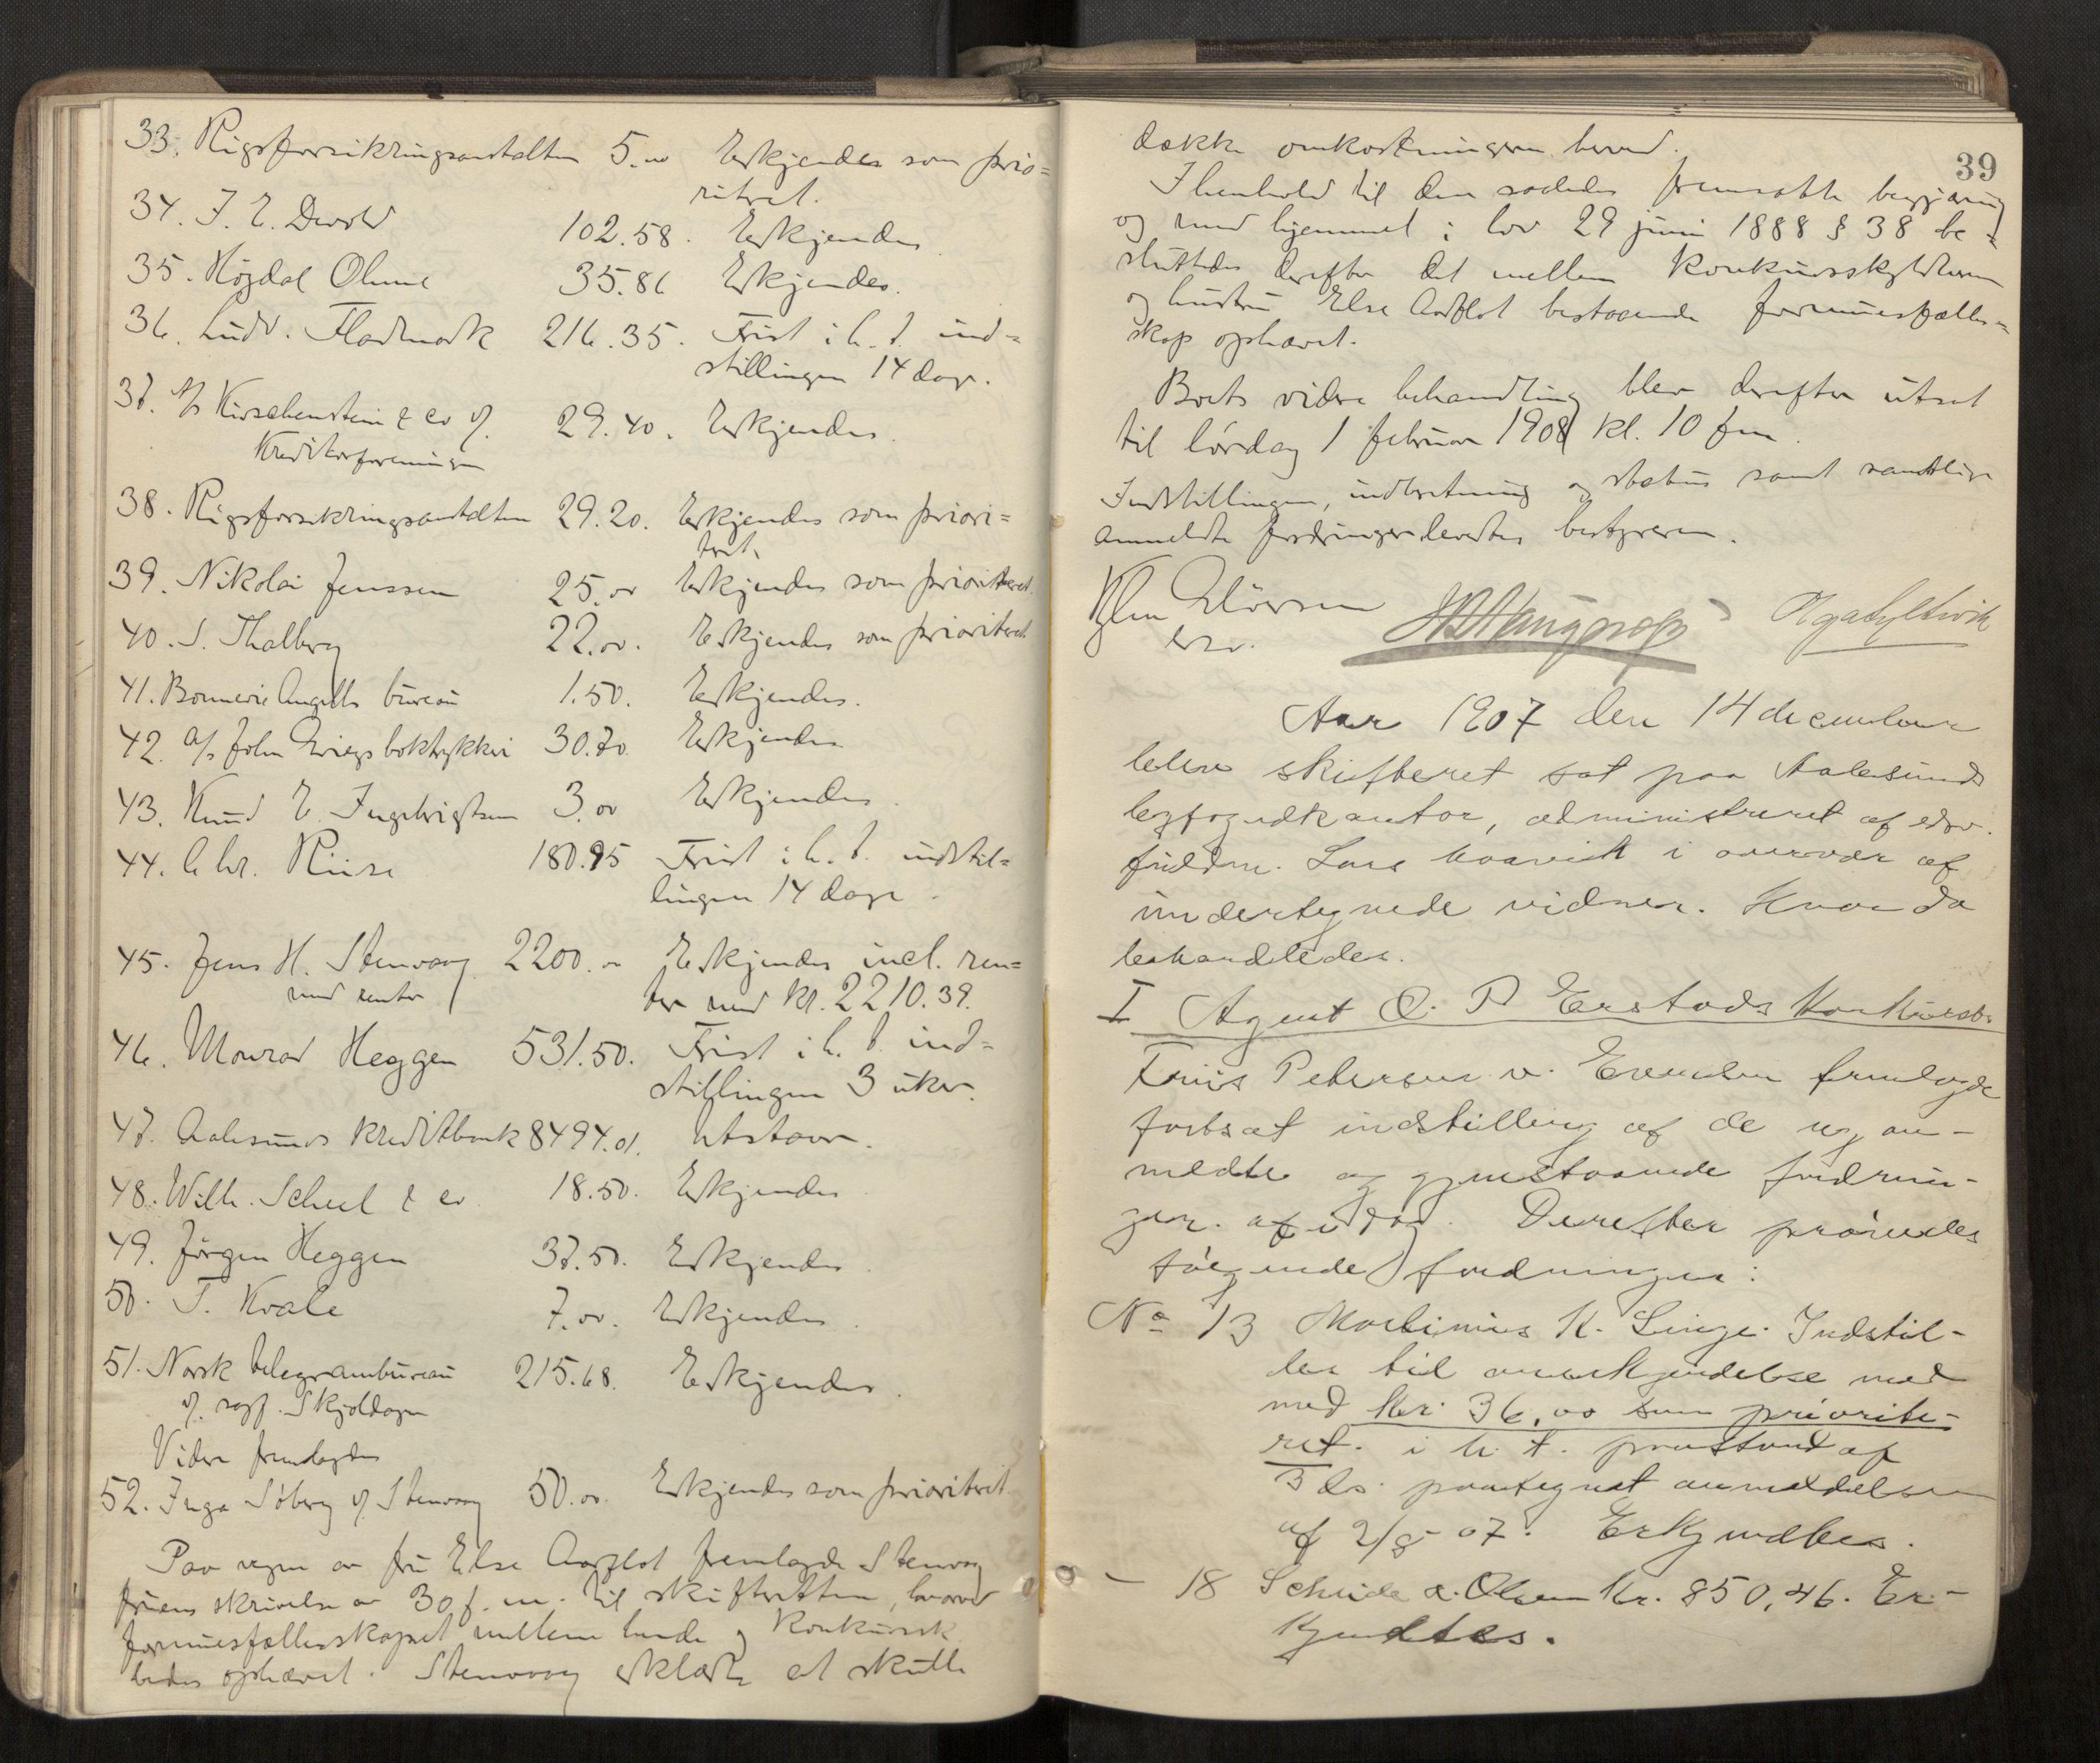 33. Rigsforsikringsanstalten 5.00 Erkjendes som prio=
ritert.
34. J. E. Devold 102.58. Erkjendes
35. Högdal Ohme 35.86 Erkjendes.
36. Ludv. Fladmark 216.35. Frist i h. t. ind=
stillingen 14 dage.
37. A/s Kirschenstein & co v/ 29.40. Erkjendes.
Kreditorforeningen
38. Rigsforsikringsanstalten 29.20. Erkjendes som priori=
tert.
39. Nikolai Jenssen 25.00 Erkjendes som prioriteret.
40. S. Thalberg 22.00. Erkjendes som prioriteret
41. Bonnevie Angells bureau 1.50. Erkjendes.
42. A/s John Griegs boktrykkeri 30.70 Erkjendes
43. Knud E. Ingebrigtsen 3.00 Erkjendes.
44. Chr. Riise 180.95 Frist i h. t. indstil=
lingen 14 dage.
45. Jens H. Stenvaag 2200.00 Erkjendes incl. ren=
med renter ter med kr. 2210.39.
46. Monrad Heggen 531.50. Frist i h. t. ind=
stillingen 3 uker.
47. Aalesunds kreditbank 8494.01. Utstaar.
48. Wilh. Scheel & co 18.50. Erkjendes
49. Jörgen Heggen 37.50. Erkjendes.
50. T. Kvale 7.00. Erkjendes.
51. Norsk telegrambureau 215.68. Erkjendes.
v/ sagf. Skjoldagen
Videre fremlagdes
52. Inga Söberg v/ Stenvaag 50.00. Erkjendes som prioritert.
Paa vegne av fru Else Aarflot fremlagde Stenvaag
fruens skrivelse av 30 f. m. til skifteretten, hvorved
formuesfællesskapet mellem hende og konkursk.
bedes ophævet. Stenvaag erklærte at skulle
39
dække omkostningene herved.
I henhold til den saaledes fremsatte begjæring
og med hjemmel i lov 29 juni 1888 § 38 be=
sluttedes derefter det mellem konkursskyldneren
og hustru Else Aarflot bestaaende formuesfælles=
skap ophævet.
Boets videre behandling blev derefter utsat
til lördag 1 februar 1908 kl. 10 fm.
Indstillingen, indberetning og status samt samtlige
anmeldte fordringer levertes bestyreren.
Aar 1907 den 14 december
blev skifteret sat paa Aalesunds
byfogedkontor, administreret af edsv.
fuldm. Lars i overvær af
undertegnede vidner. Hvor da
behandledes.
I Agent O. P. Erstads Konkursbo
Friis Petersen v. fremlagde
fortsat indstilling af de ny an-
meldte og gjenstaaende fordrin-
ger. af idag. Derefter prövedes
fölgende fordringer:
No 13 Martinius K. Linge. Indstil-
les til anerkjendelse med
med kr. 36,00 som priorite-
ret. i h. t. prostand af
3 ds. paategnet anmeldelsen
af 2/8-07. Erkjendtes.
- 18 Scheide & Olsen kr. 850,46. Er-
kjendtes.